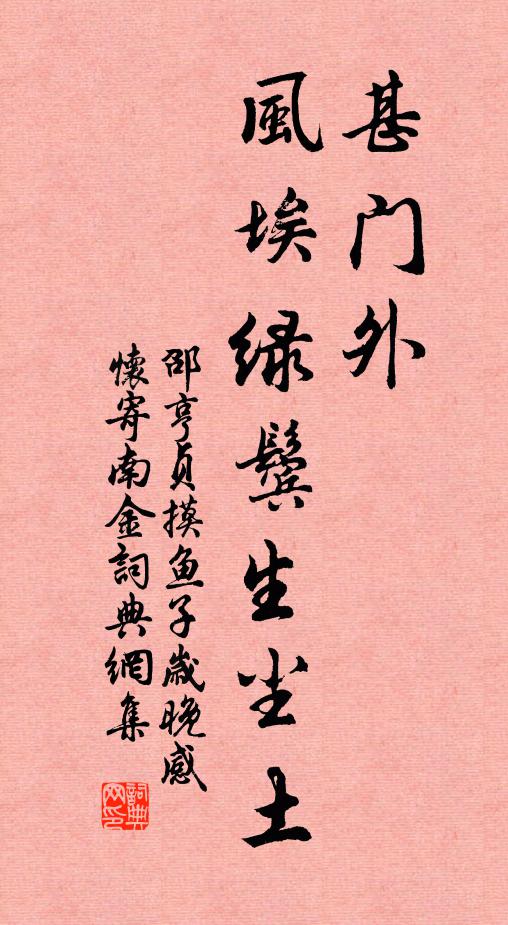 甚门外
風埃緑鬓生尘土
邵亨貞摸鱼子歲晚感
懷寄南金詞典網集
詞典
网印